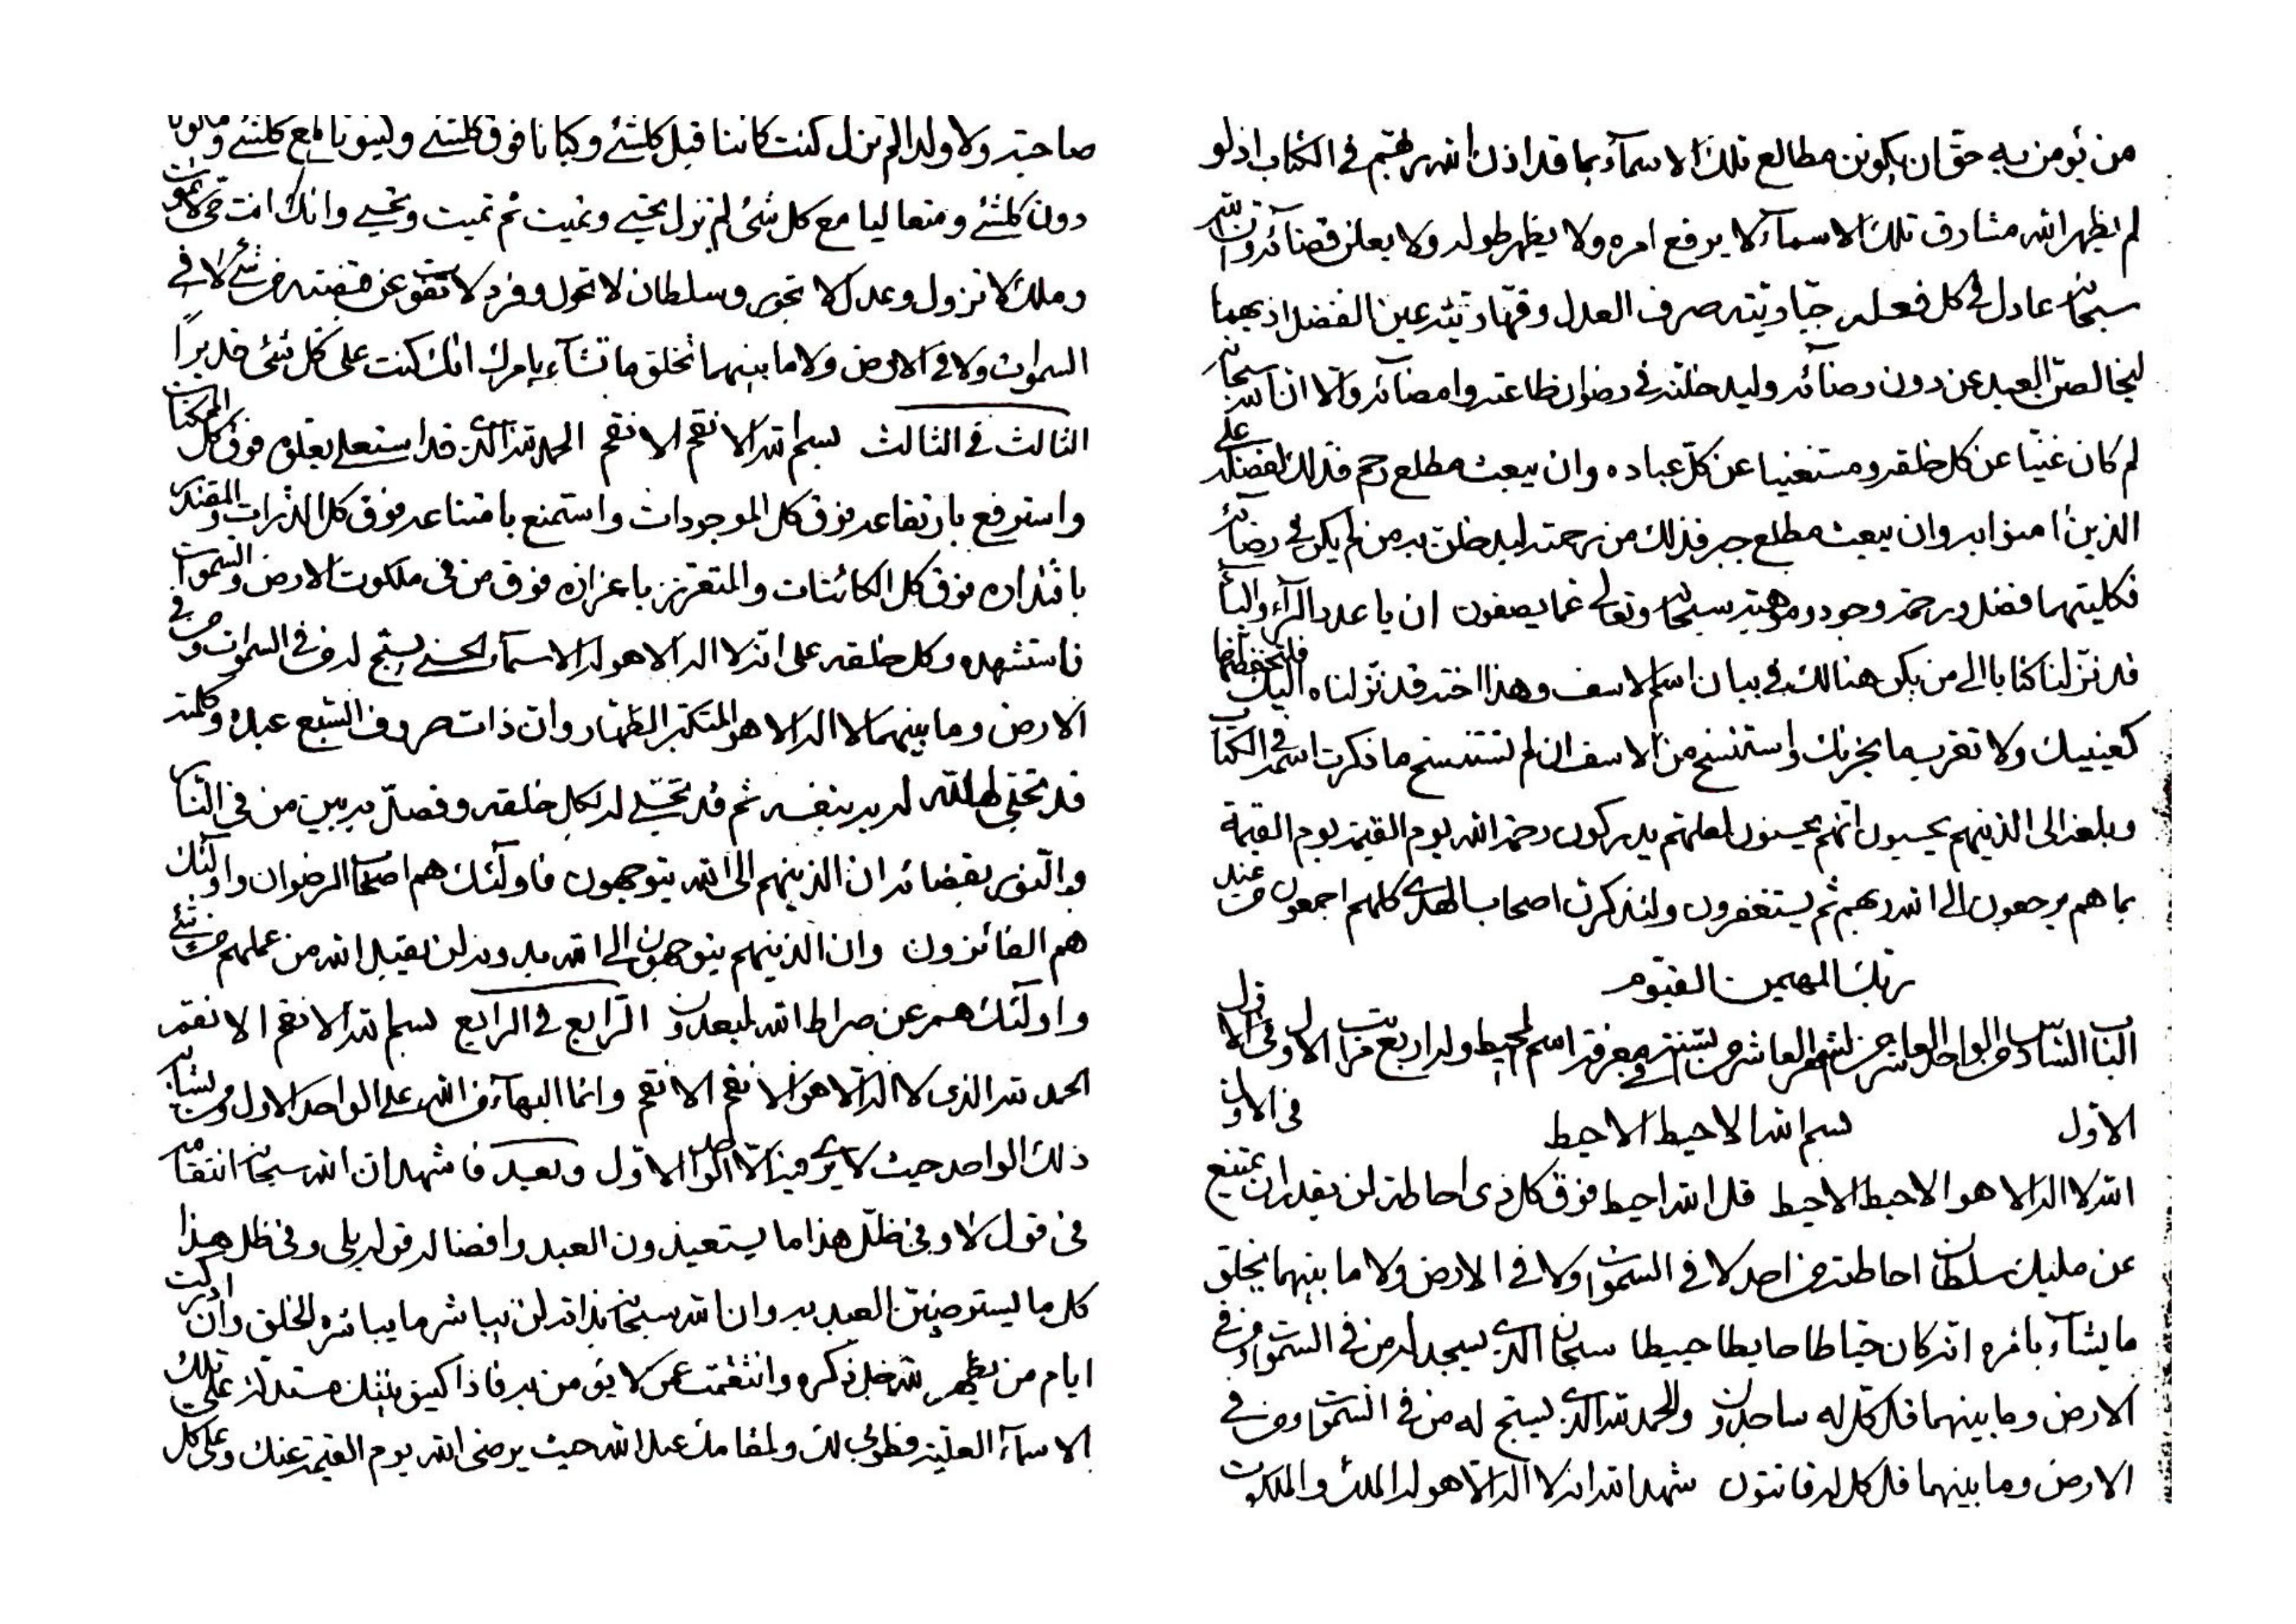 من يؤمن به حق ان يكونن مطالع تلك الاسمآء بما قد اذن الله ربهم في الكتاب اذ لو
لم يظهر الله مشارق تلك الاسمآء لا يرفع امره ولا يظهر طوله ولا يعلن قضآئه وان الله
سبحانه عادل في كل فعله جباريته صرف العدل وقهاريته عين الفضل اذ بهما
ليخالصن العبد عن دون رضائه وليدخلنه في رضوان طاعته وامضائه والا ان الله سبحانه
لم كان غنيا عن كل خلقه ومستغنيا عن كل عباده وان يبعث مطلع رحم فذلك لفضله على
الذين امنوا به وان يبعث مطلع جبر فذلك من رحمته ليدخلن به من لم يكن في رضائه
فكليتهما فضل ورحمة وجود وموهبة سبحانه وتعالى عما يصفون ان يا عدد الرآء والبآء
قد نزلنا كتابا الى من يكن هنالك في بيان اسم الاسف وهذا اخته قد نزلناه اليك فلتحفظهما
كعينيك ولا تقرب ما يحزنك واستنسخ من الاسف ان لم تستنسخ ما ذكرت اسمه في الكتاب
وبلغه الى الذينهم يحسبون انهم يحسنون لعلهم يدركون رحمة الله يوم القيمة يوم القيمة
بما هم يرجعون الى الله ربهم ثم يستغفرون ولتذكرن اصحاب الهدى كلهم اجمعون من عند
ربك المهيمن القيوم
الباب السادس من الواحد العاشر من الشهر العاشر من السنة في معرفة اسم المحيط وله اربع مراتب الاول في الاول
الاول في الاول بسم الله الاحيط الاحيط
الله لا اله الا هو الاحيط الاحيط قل الله احيط فوق كل ذي احاطة لن يقدر ان يمتنع
عن مليك سلطان احاطته من احد لا في السموات ولا في الارض ولا ما بينهما يخلق
ما يشآء بامره انه كان حياطا حايطا حييطا سبحان الذي يسجد له من في السموات ومن في
الارض وما بينهما قل كل له ساجدون والحمد لله الذي يسبح له من في السموات ومن في
الارض وما بينهما قل كل له قانتون شهد الله انه لا اله الا هو له الملك والملكوت
صاحبة ولا ولدا لم تزل كنت كائنا قبل كلشئ وكيانا فوق كلشئ وكينونا مع كلشئ
دون كلشئ ومتعاليا مع كل شئ لم تزل تحيي وتميت ثم تميت وتحيي وانك انت حي لا تموت
وملك لا تزول وعدل لا تجور وسلطان لا تحول وفرد لا يفوت عن قبضته من شئ لا في
السموات ولا في الارض ولا ما بينهما تخلق ما تشآء بامرك انك كنت على كل شئ قديرا
الثالث في الثالث بسم الله الانقم الانقم الحمد لله الذي قد استعلى بعلوه فوق كل الممكنات
واسترفع بارتفاعه فوق كل الموجودات واستمنع بامتناعه فوق كل الذرات والمقتدر
باقتداره فوق كل الكائنات والمتعزز باعزازه فوق من في ملكوت الارض والسموات
فاستشهده وكل خلقه على انه لا اله الا هو له الاسمآء الحسنى يسبح له من في السموات ومن في
الارض وما بينهما لا اله الا هو المتكبر الظهار وان ذات حروف السبع عبده وكلمته
قد تجلى الله له به بنفسه ثم قد تجلى له لكل خلقه وفصل به بين من في النار
والنور بقضائه ان الذينهم الى الله يتوجهون فاولئك هم اصحاب الرضوان واولئك
هم الفائزون وان الذينهم يتوجهون الى الله بدونه لن يقبل الله من عملهم من شئ
واولئك هم عن صراط الله لمبعدون الرابع في الرابع بسم الله الانقم الانقم
الحمد لله الذي لا اله الا هو الانقم الانقم وانما البهآء من الله على الواحد الاول ومن يشابه
ذلك الواحد حيث لا يرى فيه الا الواحد الاول وبعد فاشهد ان الله سبحانه انتقامه
في قول لا وفي ظل هذا ما يستعيذون العبد وافضاله قوله بلى وفي ظل هذا
كل ما يسترضين العبد به وان الله سبحانه بذاته لن يباشر ما يباشره الخلق وان ادركت
ايام من يظهره الله جل ذكره وانتقمت عمن لا يؤمن به فاذا كينونيتك مستدلة على تلك
الاسمآء العلية فطوبى لك ولمقامك عبد الله حيث يرضى الله يوم القيمة عنك وعلى كل